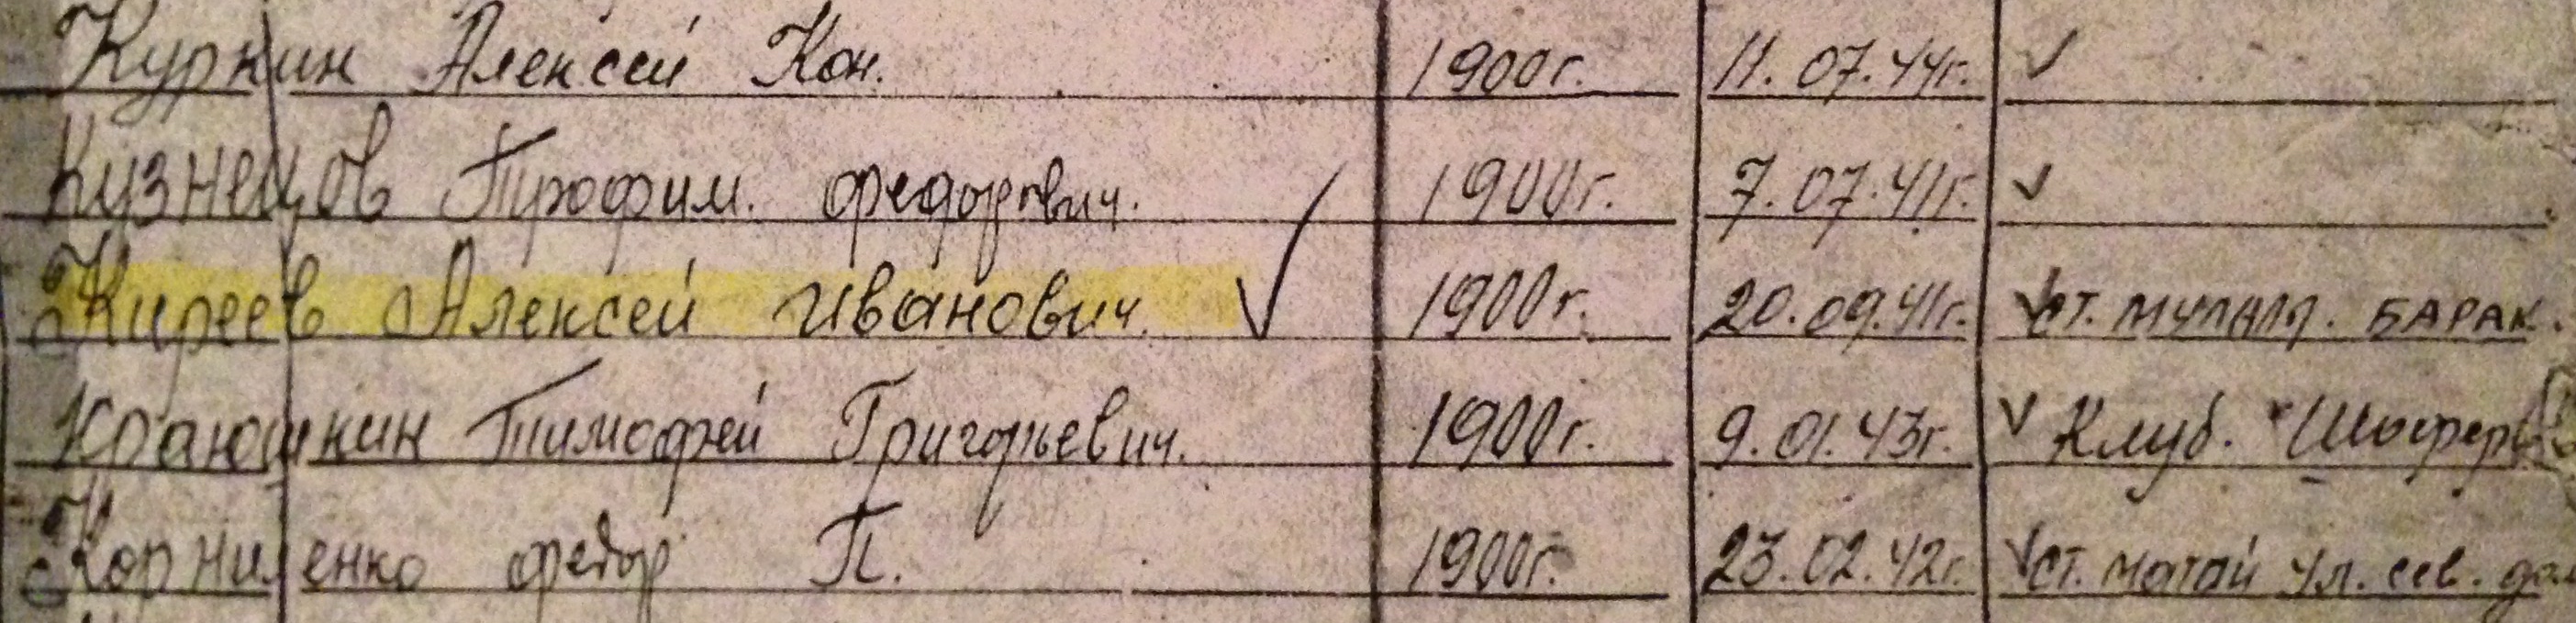 Куркин Алексей Кон. 1900г. 11.07.44г. ✓
Кузнецов Трофим. Федорович. 1900г. 7.07.41г. ✓
Киреев Алексей Иванович. ✓ 1900г. 20.09.41г. ✓ ст. МУЛАЛЫ. БАРАК.
Краюшкин Тимофей Григорьевич. 1900г. 9.01.43г. ✓ Клуб.
Корниленко Федор П. 1900г. 23.02.42г. ✓ ст. Матай ул. сев.